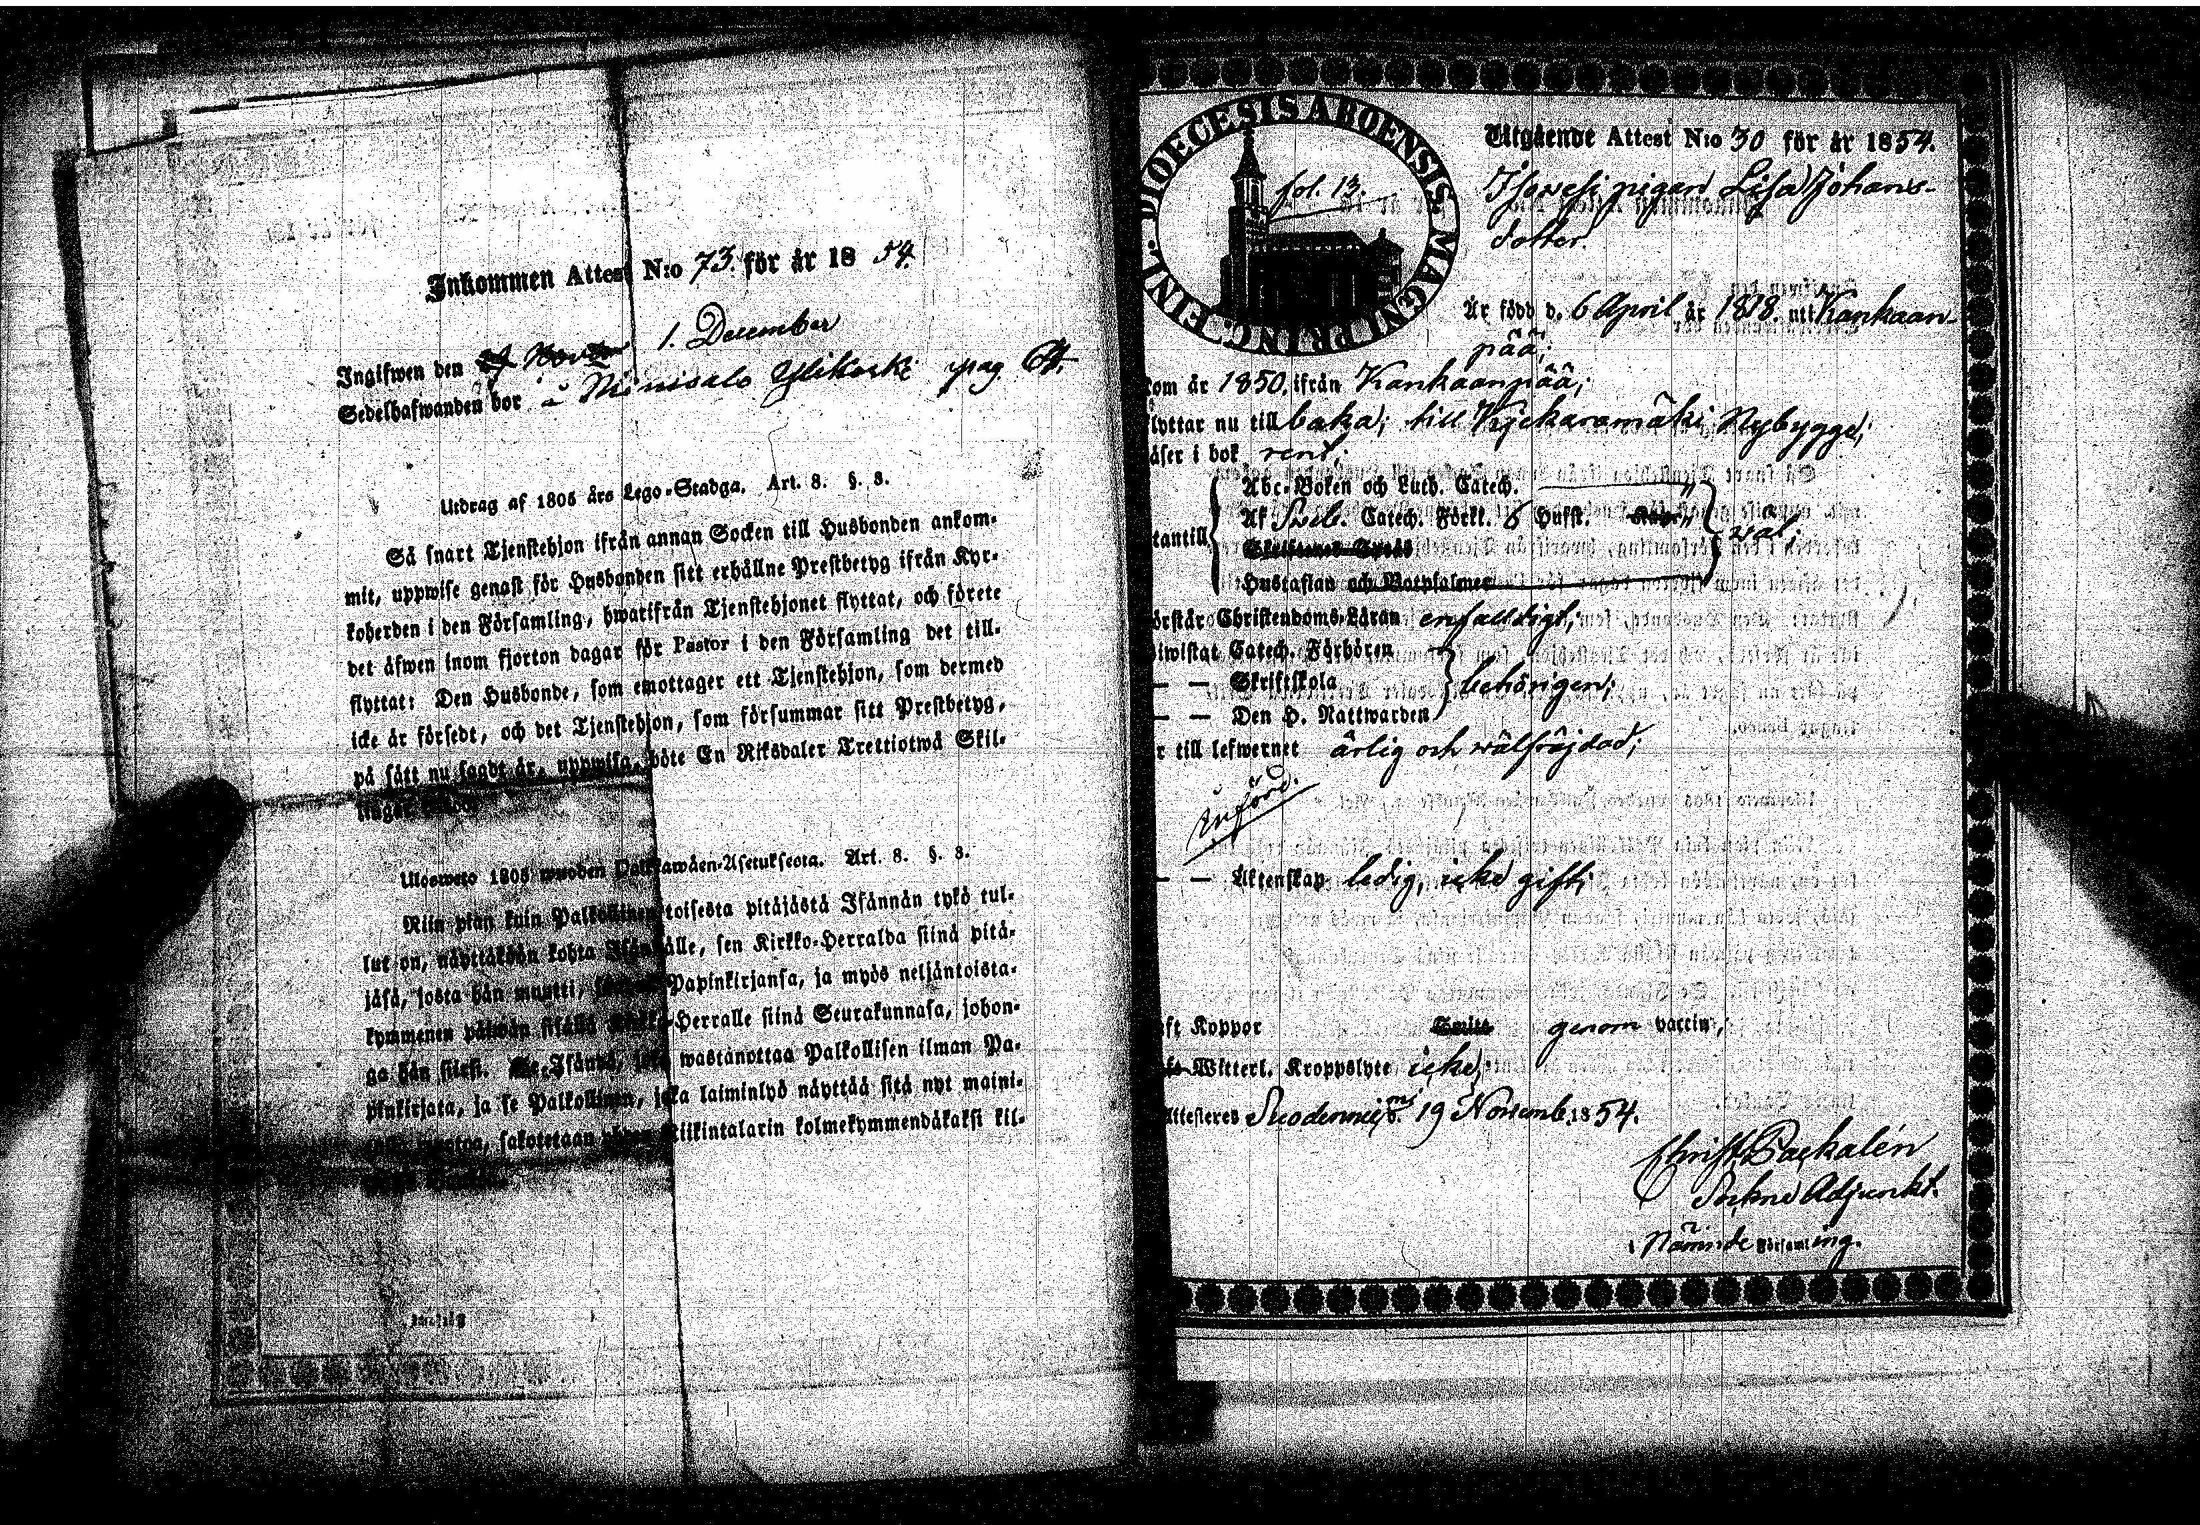 Inkommen Attest N:o 73. för år 1854.
Ingifwen den 1. December
Sedelhafwanden bor å Niinisalo Ylikoski pag.
Utdrag af 1805 års Lego-Stadga. Art. 8. §. 3.
Så snart Tjenstehjon ifrån annan Socken till Husbonden ankom-
mit, uppwise genast för Husbonden sitt erhållne Prestbetyg ifrån Kyr-
koherden i den Församling, hwarifrån Tjenstehjonet flyttat, och förete
det äfwen inom fjorton dagar för Pastor i den Församling det till-
flyttat: Den Husbonde, som emottager ett Tjenstehjon, som dermed
icke är försedt, och det Tjenstehjon, som försummar sitt Prestbetyg,
på sätt nu sagdt är, uppwisa, böte En Riksdaler Trettiotwå Skil-
Uloswето 1805 wuoden Palkkawäen-Asetuksesta. Art. 8. §. 3.
Niin pian kuin Palkollinen toisesta pitäjästä Isännän tykö tul-
lut on, näyttäkään kohta Isännälle, sen Kirkko-Herralda siinä pitä-
jäsä, josta hän muutti, Papinkirjansa, ja myös neljäntoista-
kymmenen päiwän sisällä Kirkko-Herralle siinä Seurakunnasa, johon-
ga hän siirsi. Se Isändä, joka wastanottaa Palkollisen ilman Pa-
pinkirjata, ja se Palkollinen, joka laiminlyö näyttää sitä nyt maini-
sakotetaan yhden Riikintalarin kolmekymmendäkaksi kil-
DIOECESIS ABOENSIS. MAGNI PRINC. FINL.
fol. 13.
Utgående Attest N:o 30 för år 1854.
pigan Lisa Johans-
dotter.
Är född d. 6 April år 1818. uti Kankaan-
pää;
kom år 1850. ifrån Kankaanpää;
flyttar nu till baka; till Nybygge;
läser i bok rent;
Abc-Boken och Luth. Catech. "
Af Sveb. Catech. Förkl. 6 Hufst. "
utantill wäl;
Hustaflan och Botpsalmer
förstår Christendoms-Läran enfaldigt;
biwistat Catech. Förhören
— — Skriftskola behörigen;
— — Den H. Nattwarden
är till lefwernet ärlig och wälfräjdad;
Införd.
— — Äktenskap ledig, icke gift;
haft Koppor genom vaccin;
Witterl. Kroppslyte icke;
Attesteras Suodenniemi d. 19 Novemb. 1854.
Christ. Packalén
Sockne Adjunkt.
i Nämnde Församling.